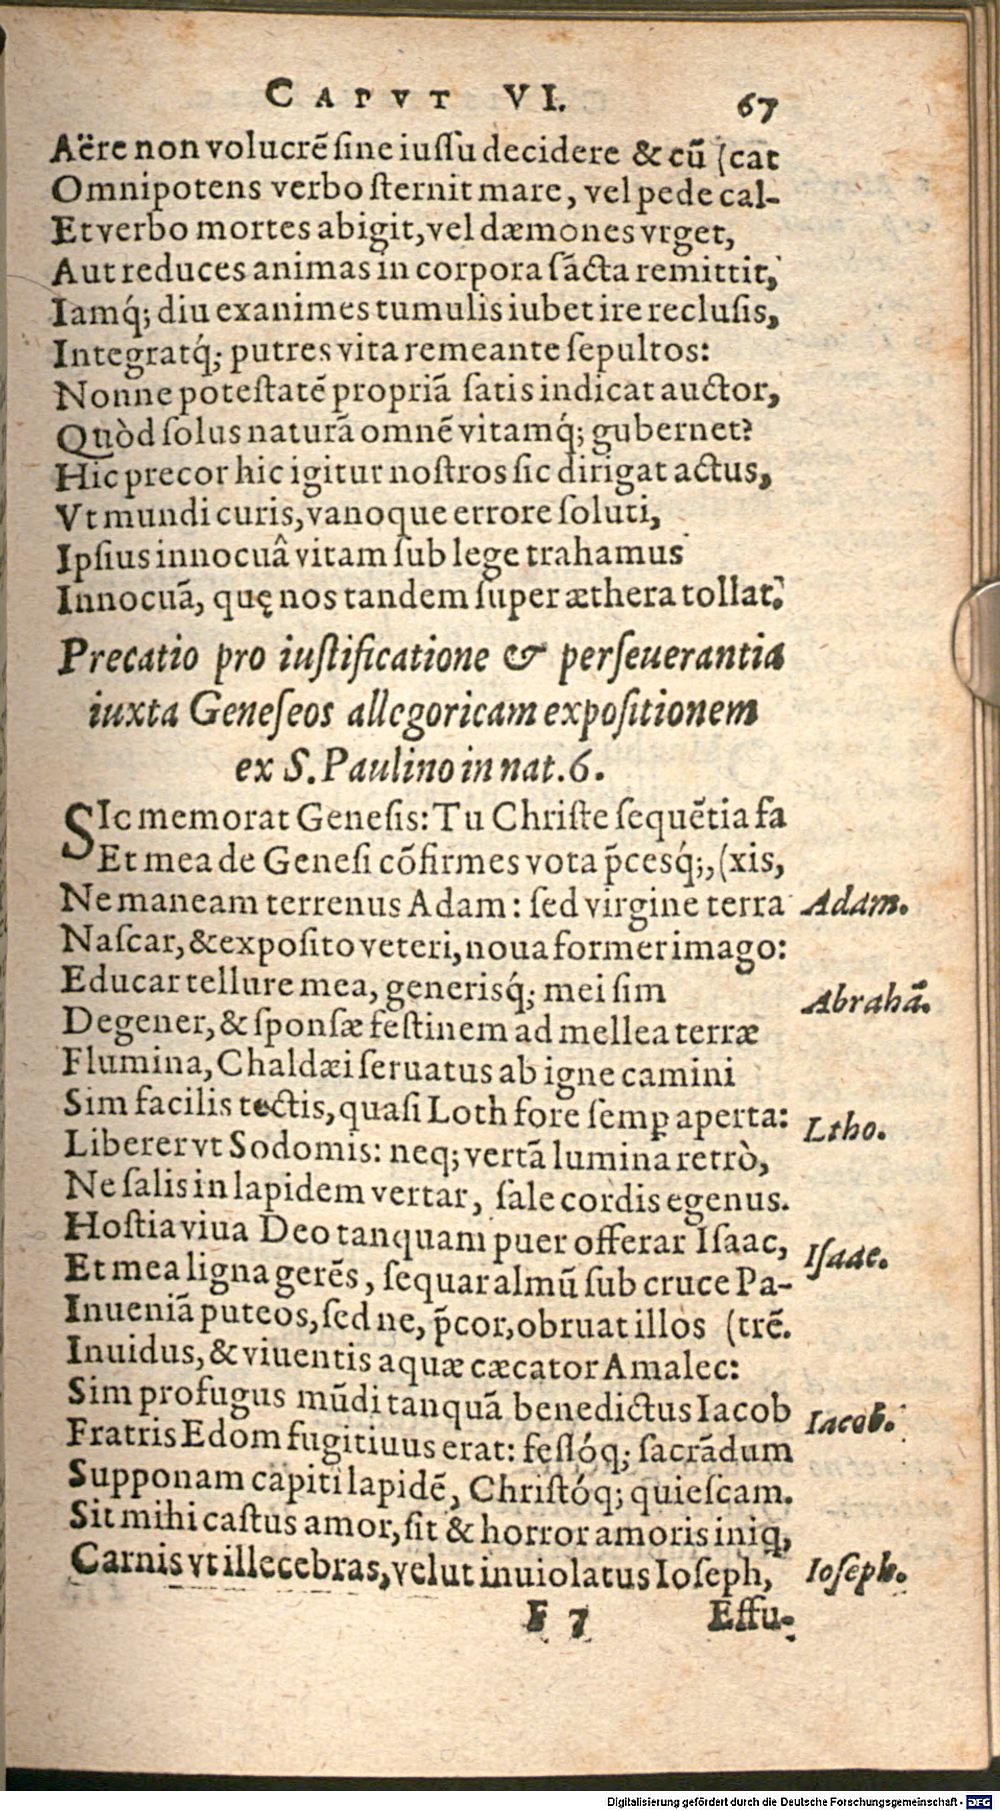 CAPVT VI. 67
Aëre non volucrẽ sine iussu decidere & cũ (cat
Omnipotens verbo sternit mare, vel pede cal-
Et verbo mortes abigit, vel dæmones vrget,
Aut reduces animas in corpora sãcta remittit,
Iamq́; diu exanimes tumulis iubet ire reclusis,
Integratq́; putres vita remeante sepultos:
Nonne potestatẽ propriã satis indicat auctor,
Quòd solus naturã omnẽ vitamq́; gubernet?
Hic precor hic igitur nostros sic dirigat actus,
Vt mundi curis, vanoque errore soluti,
Ipsius innocuâ vitam sub lege trahamus
Innocuã, quę nos tandem super æthera tollat.
Precatio pro iustificatione & perseuerantia
iuxta Geneseos allegoricam expositionem
ex S. Paulino in nat. 6.
SIc memorat Genesis: Tu Christe sequẽtia fa
Et mea de Genesi cõfirmes vota p̃cesq́;, (xis,
Ne maneam terrenus Adam: sed virgine terra Adam.
Nascar, & exposito veteri, noua former imago:
Educar tellure mea, generisq́; mei sim Abrahã.
Degener, & sponsæ festinem ad mellea terræ
Flumina, Chaldæi seruatus ab igne camini
Sim facilis tectis, quasi Loth fore semꝑ aperta: Ltho.
Liberer vt Sodomis: neq; vertã lumina retrò,
Ne salis in lapidem vertar, sale cordis egenus.
Hostia viua Deo tanquam puer offerar Isaac, Isaac.
Et mea ligna gerẽs, sequar almũ sub cruce Pa-
Inueniã puteos, sed ne, p̃cor, obruat illos (trẽ.
Inuidus, & viuentis aquæ cæcator Amalec:
Sim profugus mũdi tanquã benedictus Iacob Iacob.
Fratris Edom fugitiuus erat: fessóq; sacrãdum
Supponam capiti lapidẽ, Christóq; quiescam.
Sit mihi castus amor, sit & horror amoris iniq,
Carnis vt illecebras, velut inuiolatus Ioseph, Ioseph.
F 7 Effu-
Digitalisierung gefördert durch die Deutsche Forschungsgemeinschaft - DFG